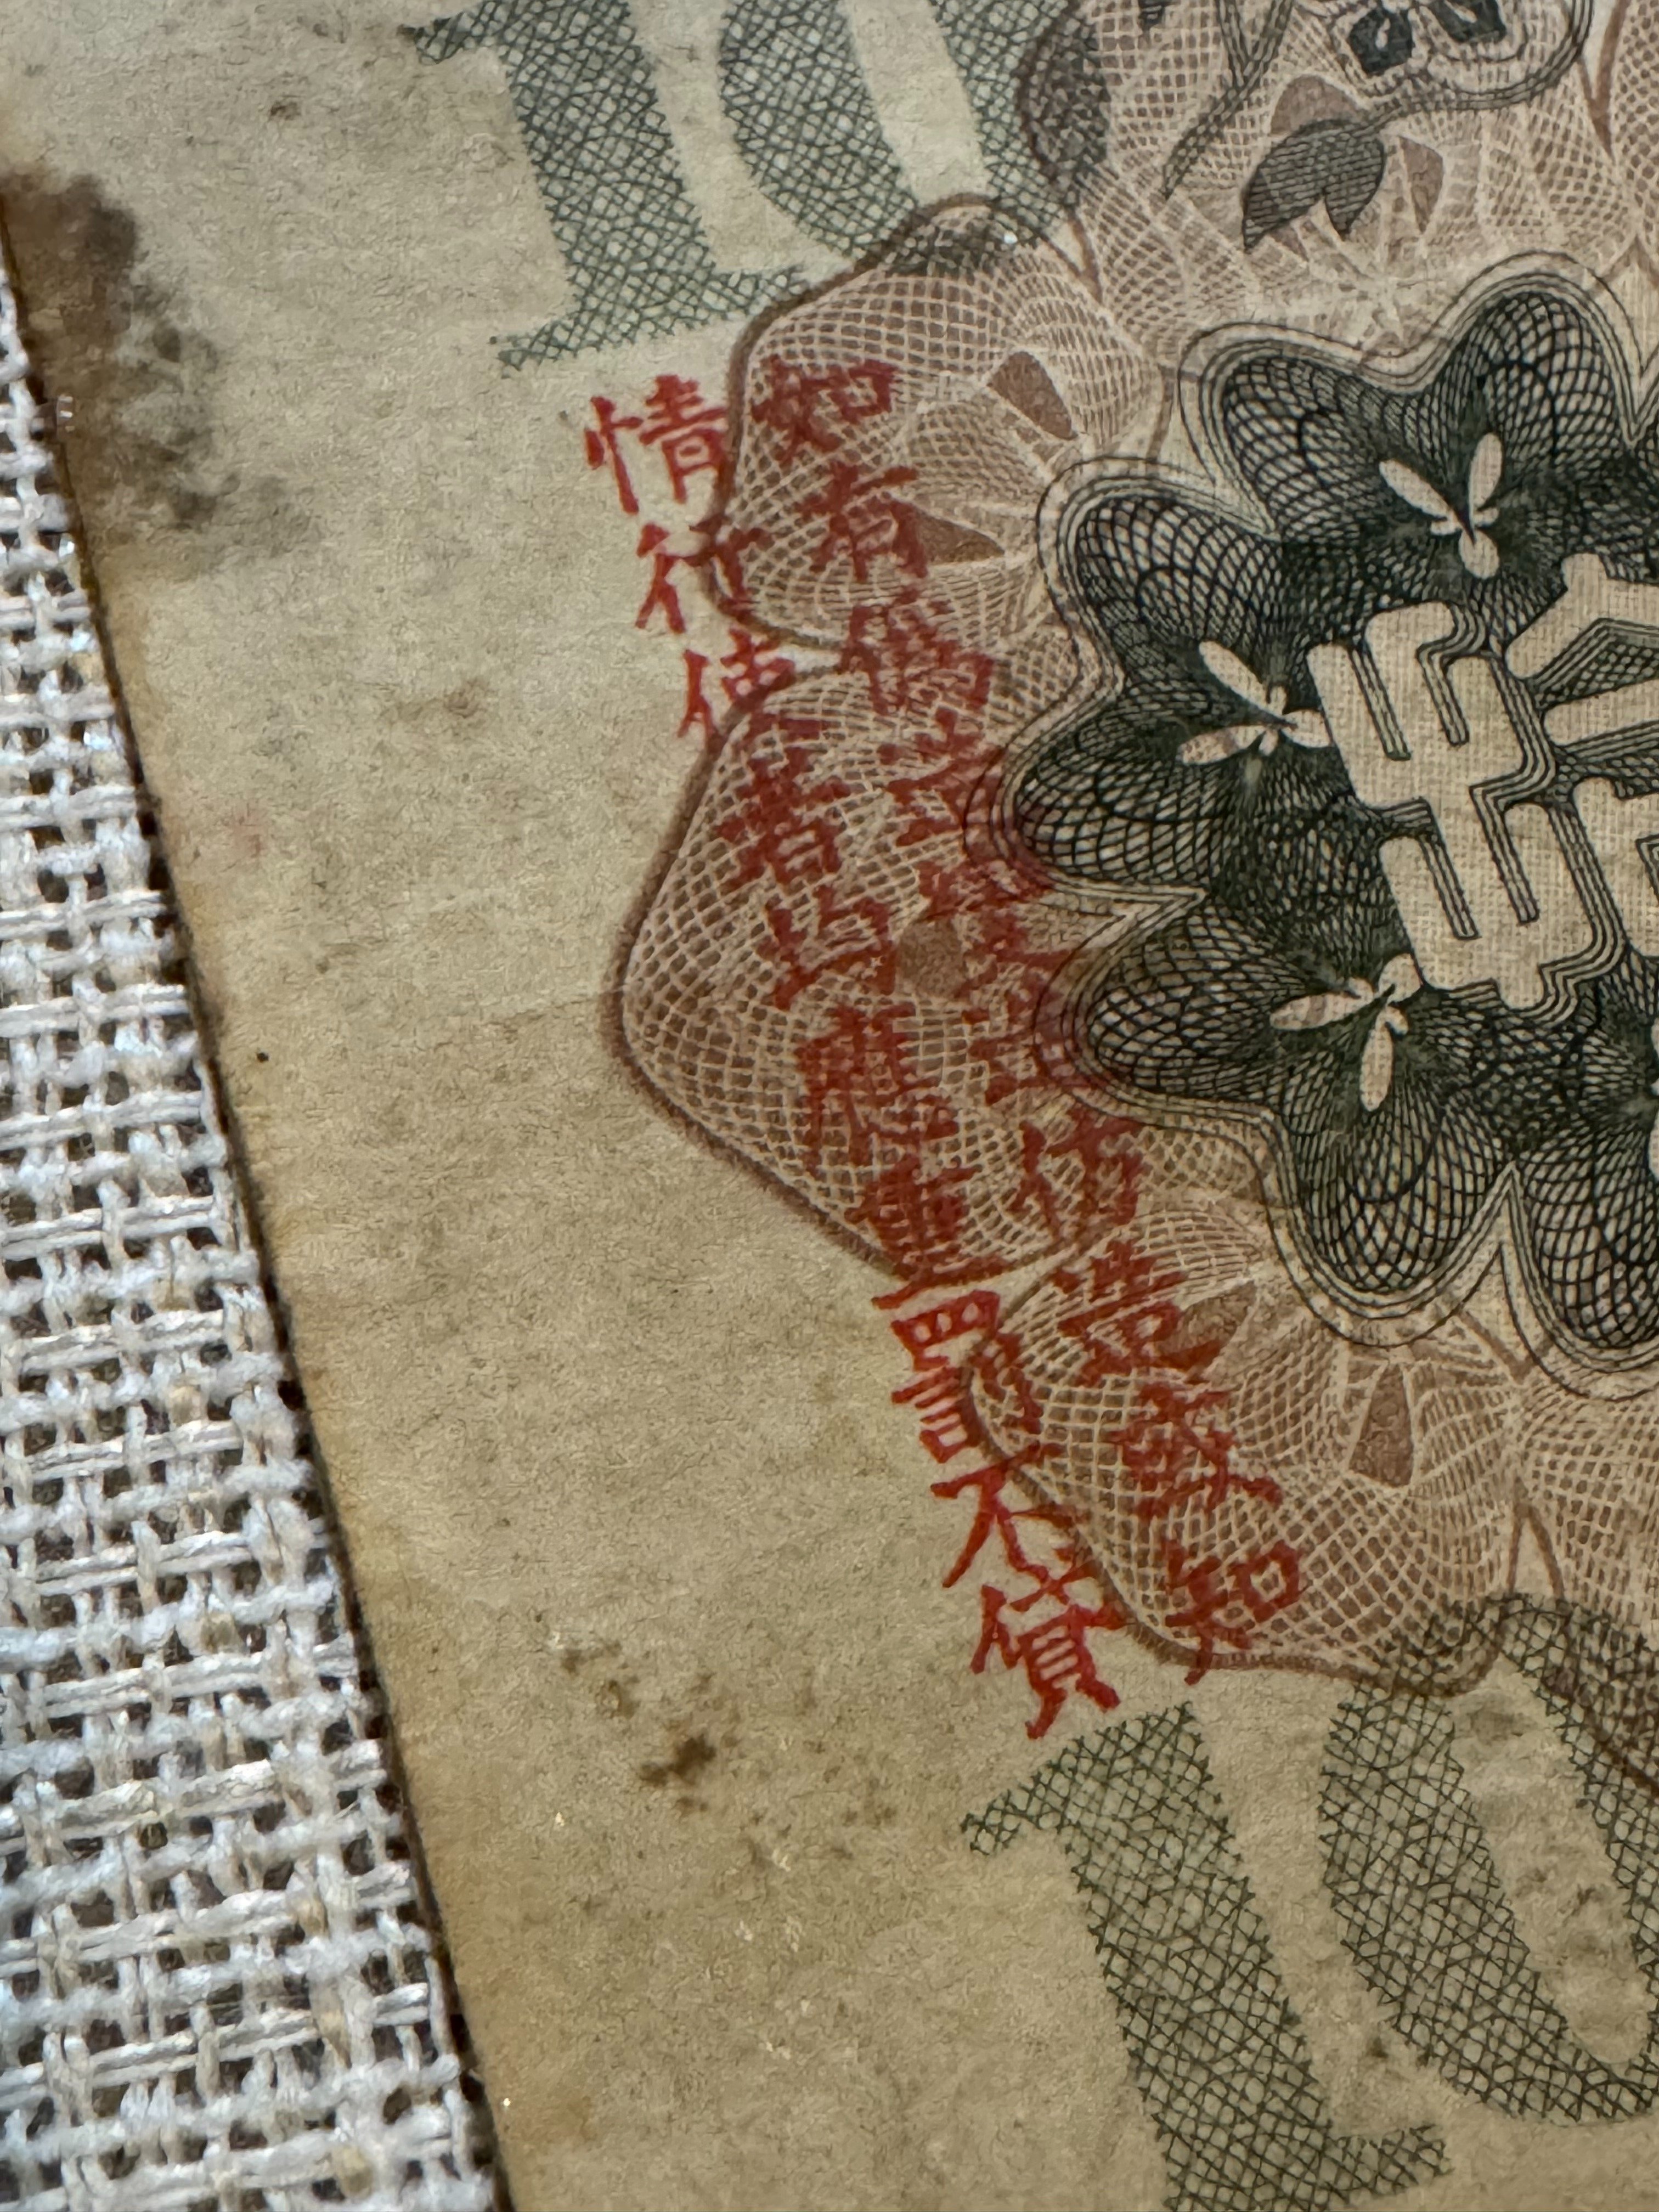 10
如有偽造變造仿造或知
情行使者均應重罰不貸
10